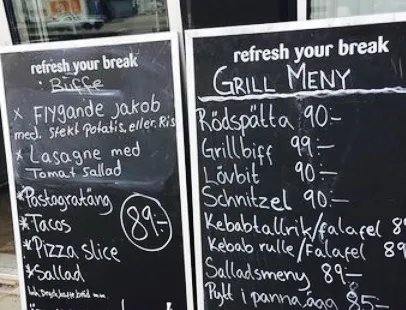 refresh your break
Buffe
x Flygande jakob
med. stekt Potatis, eller. Ris
x Lasagne med
Tomat sallad
*Pastagratäng
*Tacos
89:-
*Pizza slice
*Sallad
ink. Dryck, kaffe bröd m.m.
refresh your break
GRILL MENY
Rödspätta 90:-
Grillbiff 99:-
Lövbit 90:-
Schnitzel 90:-
Kebabtallrik/falafel 89
Kebab rulle/falafel 89
Salladsmeny 89:-
Pytt i panna, ägg 85:-